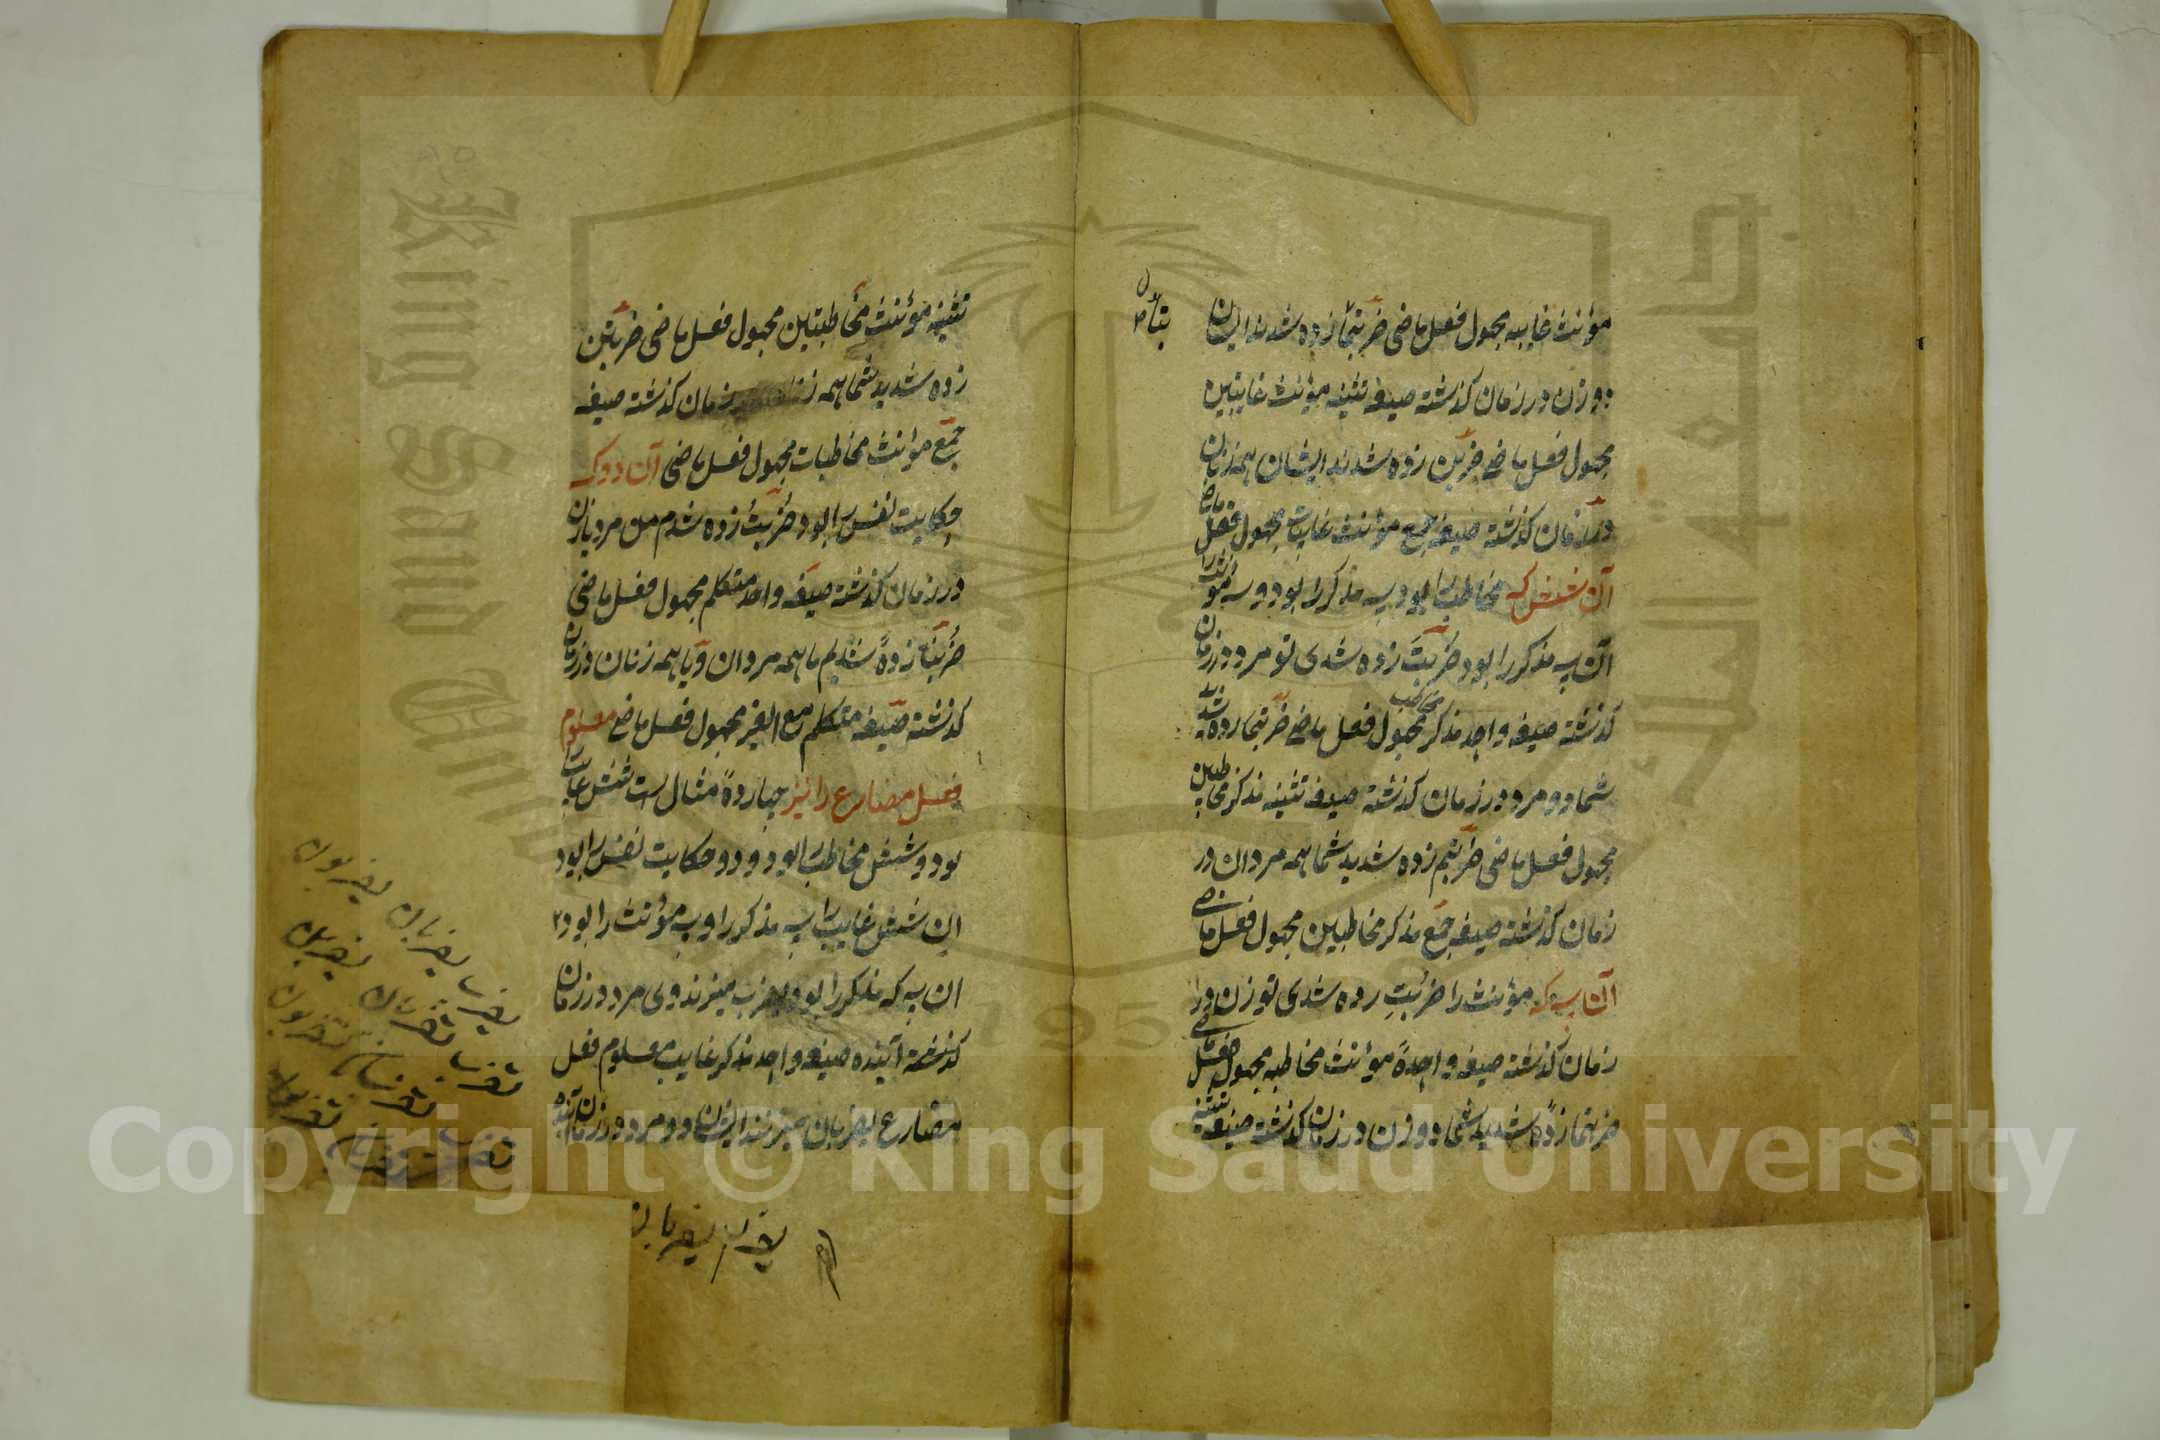 مؤنث غایبه مجهول فعل ماضی ضربتما زده شدند این
دو زن در زمان کذشته صیغه تثنیه مؤنث غایبتین
مجهول فعل ماضی ضربن زده شدند ایشان همه زنان
در زمان کذشته صیغه جمع مؤنث غایبات مجهول فعل ماضی
آن شش که مخاطب را بود سه مذکر را بود و سه مؤنث را
آن سه مذکر را بود ضربت زده شدی تو مرد در زمان
کذشته صیغه واحد مذکر مخاطب مجهول فعل ماضی ضربتما زده شدید
شما دو مرد در زمان کذشته صیغه تثنیه مذکر مخاطبین
مجهول فعل ماضی ضربتم زده شدید شما همه مردان در
زمان کذشته صیغه جمع مذکر مخاطبین مجهول فعل ماضی
آن سه که مؤنث را ضربت زده شدی تو زن در
زمان کذشته صیغه واحدة مؤنث مخاطبه مجهول فعل ماضی
ضربتما زده شدید شما دو زن در زمان کذشته صیغه تثنیه
تثنیه مؤنث مخاطبتین مجهول فعل ماضی ضربتن
زده شدید شما همه زنان در زمان کذشته صیغه
جمع مؤنث مخاطبات مجهول فعل ماضی آن دو که
حکایت نفس را بود ضربت زده شدم من مرد یا زن
در زمان کذشته صیغه واحد متکلم مجهول فعل ماضی
ضربنا زده شدیم ما همه مردان و یا همه زنان در زمان
کذشته صیغه متکلم مع الغیر مجهول فعل ماضی معلوم
فعل مضارع را نیز چهارده مثال است شش غایب را
بود و شش مخاطب را بود و دو حکایت نفس را بود
این شش غایب را سه مذکر را و سه مؤنث را بود
ان سه که مذکر را بود یضرب میزند وی مرد در زمان
کذشته آینده صیغه واحد مذکر غایب معلوم فعل
مضارع یضربان میزنند ایشان دو مرد در زمان آینده
یضرب یضربان یضربون
تضرب تضربان یضربن
تضرب تضربان تضربون
یضربان
King Saud University
1957
Copyright © King Saud University